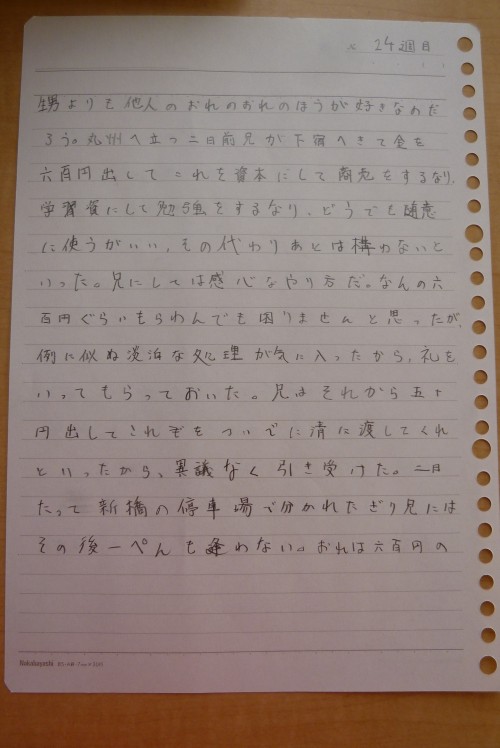 24週目
甥よりも他人のおれのおれのほうが好きなのだ
ろう。九州へ立つ二日前兄が下宿へきて金を
六百円出してこれを資本にして商売をするなり、
学習資にして勉強をするなり、どうでも随意
に使うがいい、その代わりあとは構わないと
いった。兄にしては感心なやり方だ。なんの六
百円ぐらいもらわんでも困りませんと思ったが、
例に似ぬ淡泊な処理が気に入ったから、礼を
いってもらっておいた。兄はそれから五十
円出してこれをついでに清に渡してくれ
といったから、異議なく引き受けた。二日
たって新橋の停車場で分かれたぎり兄には
その後一ぺんも逢わない。おれは六百円の
Nakabayashi